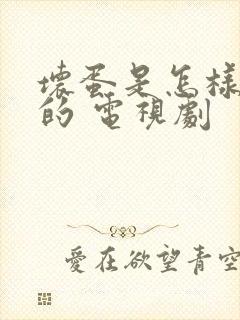 壞蛋是怎樣
的 電視劇
愛在欲望青空